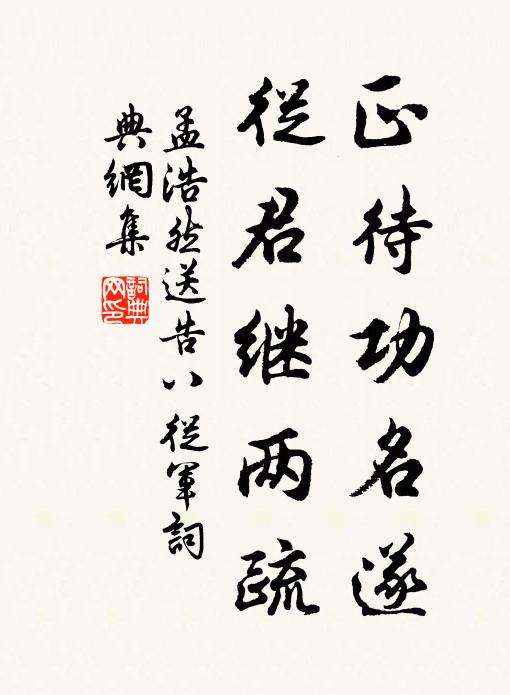 正待功名遂
從君继两疏
孟浩然送告八從軍詞
典網集
詞典
网印